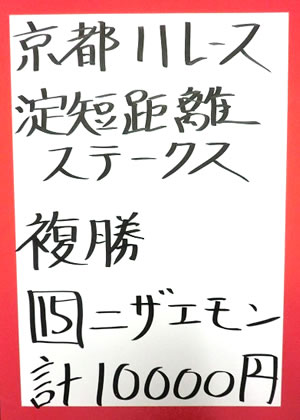 京都11レース
淀短距離
ステークス
複勝
15ニザエモン
計10000円